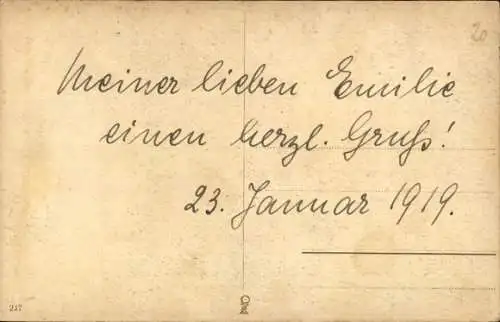 20
Meiner lieben Emilie
einen herzl. Gruß!
23. Januar 1919.
217